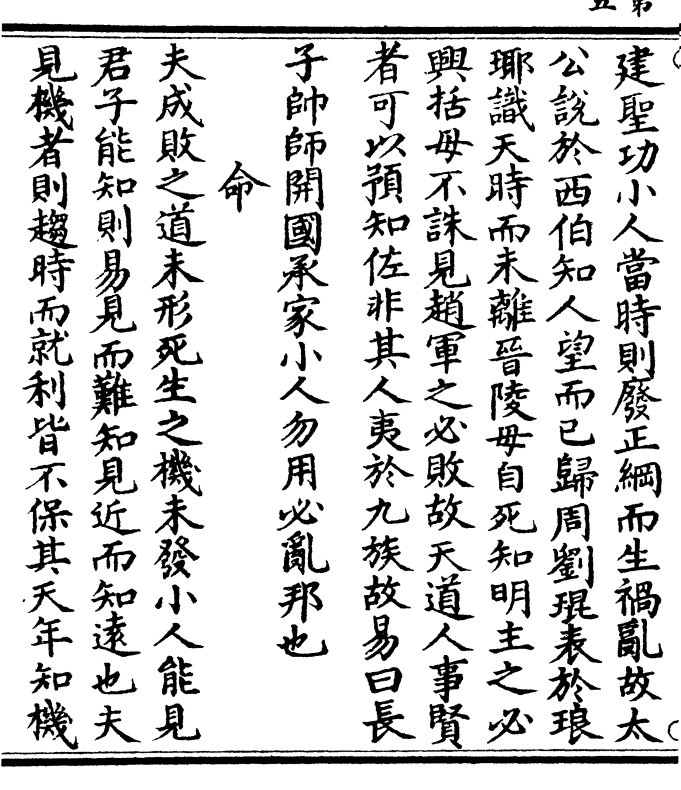 建聖功小人當時則廢正綱而生禍亂故太
公說於西伯知人望而已歸周劉琨表於琅
瑘識天時而未離晉陵母自死知明主之必
興括母不誅見趙軍之必敗故天道人事賢
者可以預知佐非其人夷於九族故易曰長
子帥師開國承家小人勿用必亂邦也
命
夫成敗之道未形死生之機未發小人能見
君子能知則易見而難知見近而知遠也夫
見機者則趨時而就利皆不保其天年知機